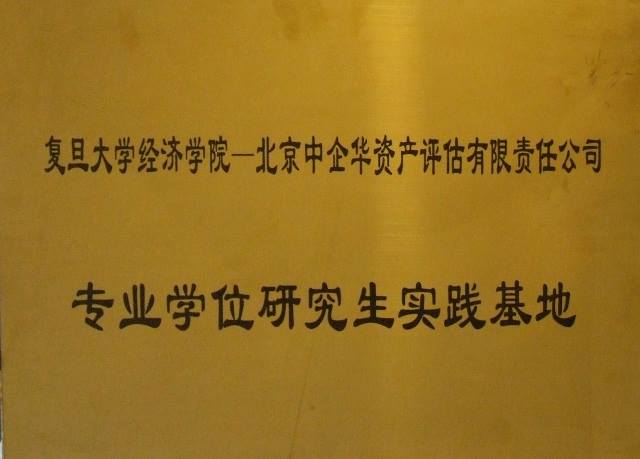 复旦大学经济学院—北京中企华资产评估有限责任公司
专业学位研究生实践基地